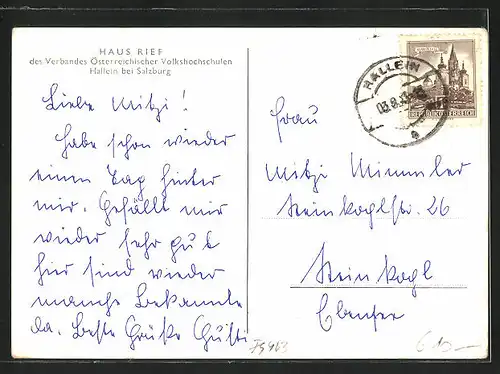 HAUS RIEF
des Verbandes Österreichischer Volkshochschulen
Hallein bei Salzburg
Liebe Mitzi!
Habe schon wieder
einen Tag hinter
mir. Gefällt mir
wieder sehr gut
hier sind wieder
manche Bekannte
da. Beste Grüße Gusti
HALLEIN
REPUBLIK ÖSTERREICH
Frau
Mitzi Mimmler
Steinkoglstr. 26
Steinkogl
Ebensee